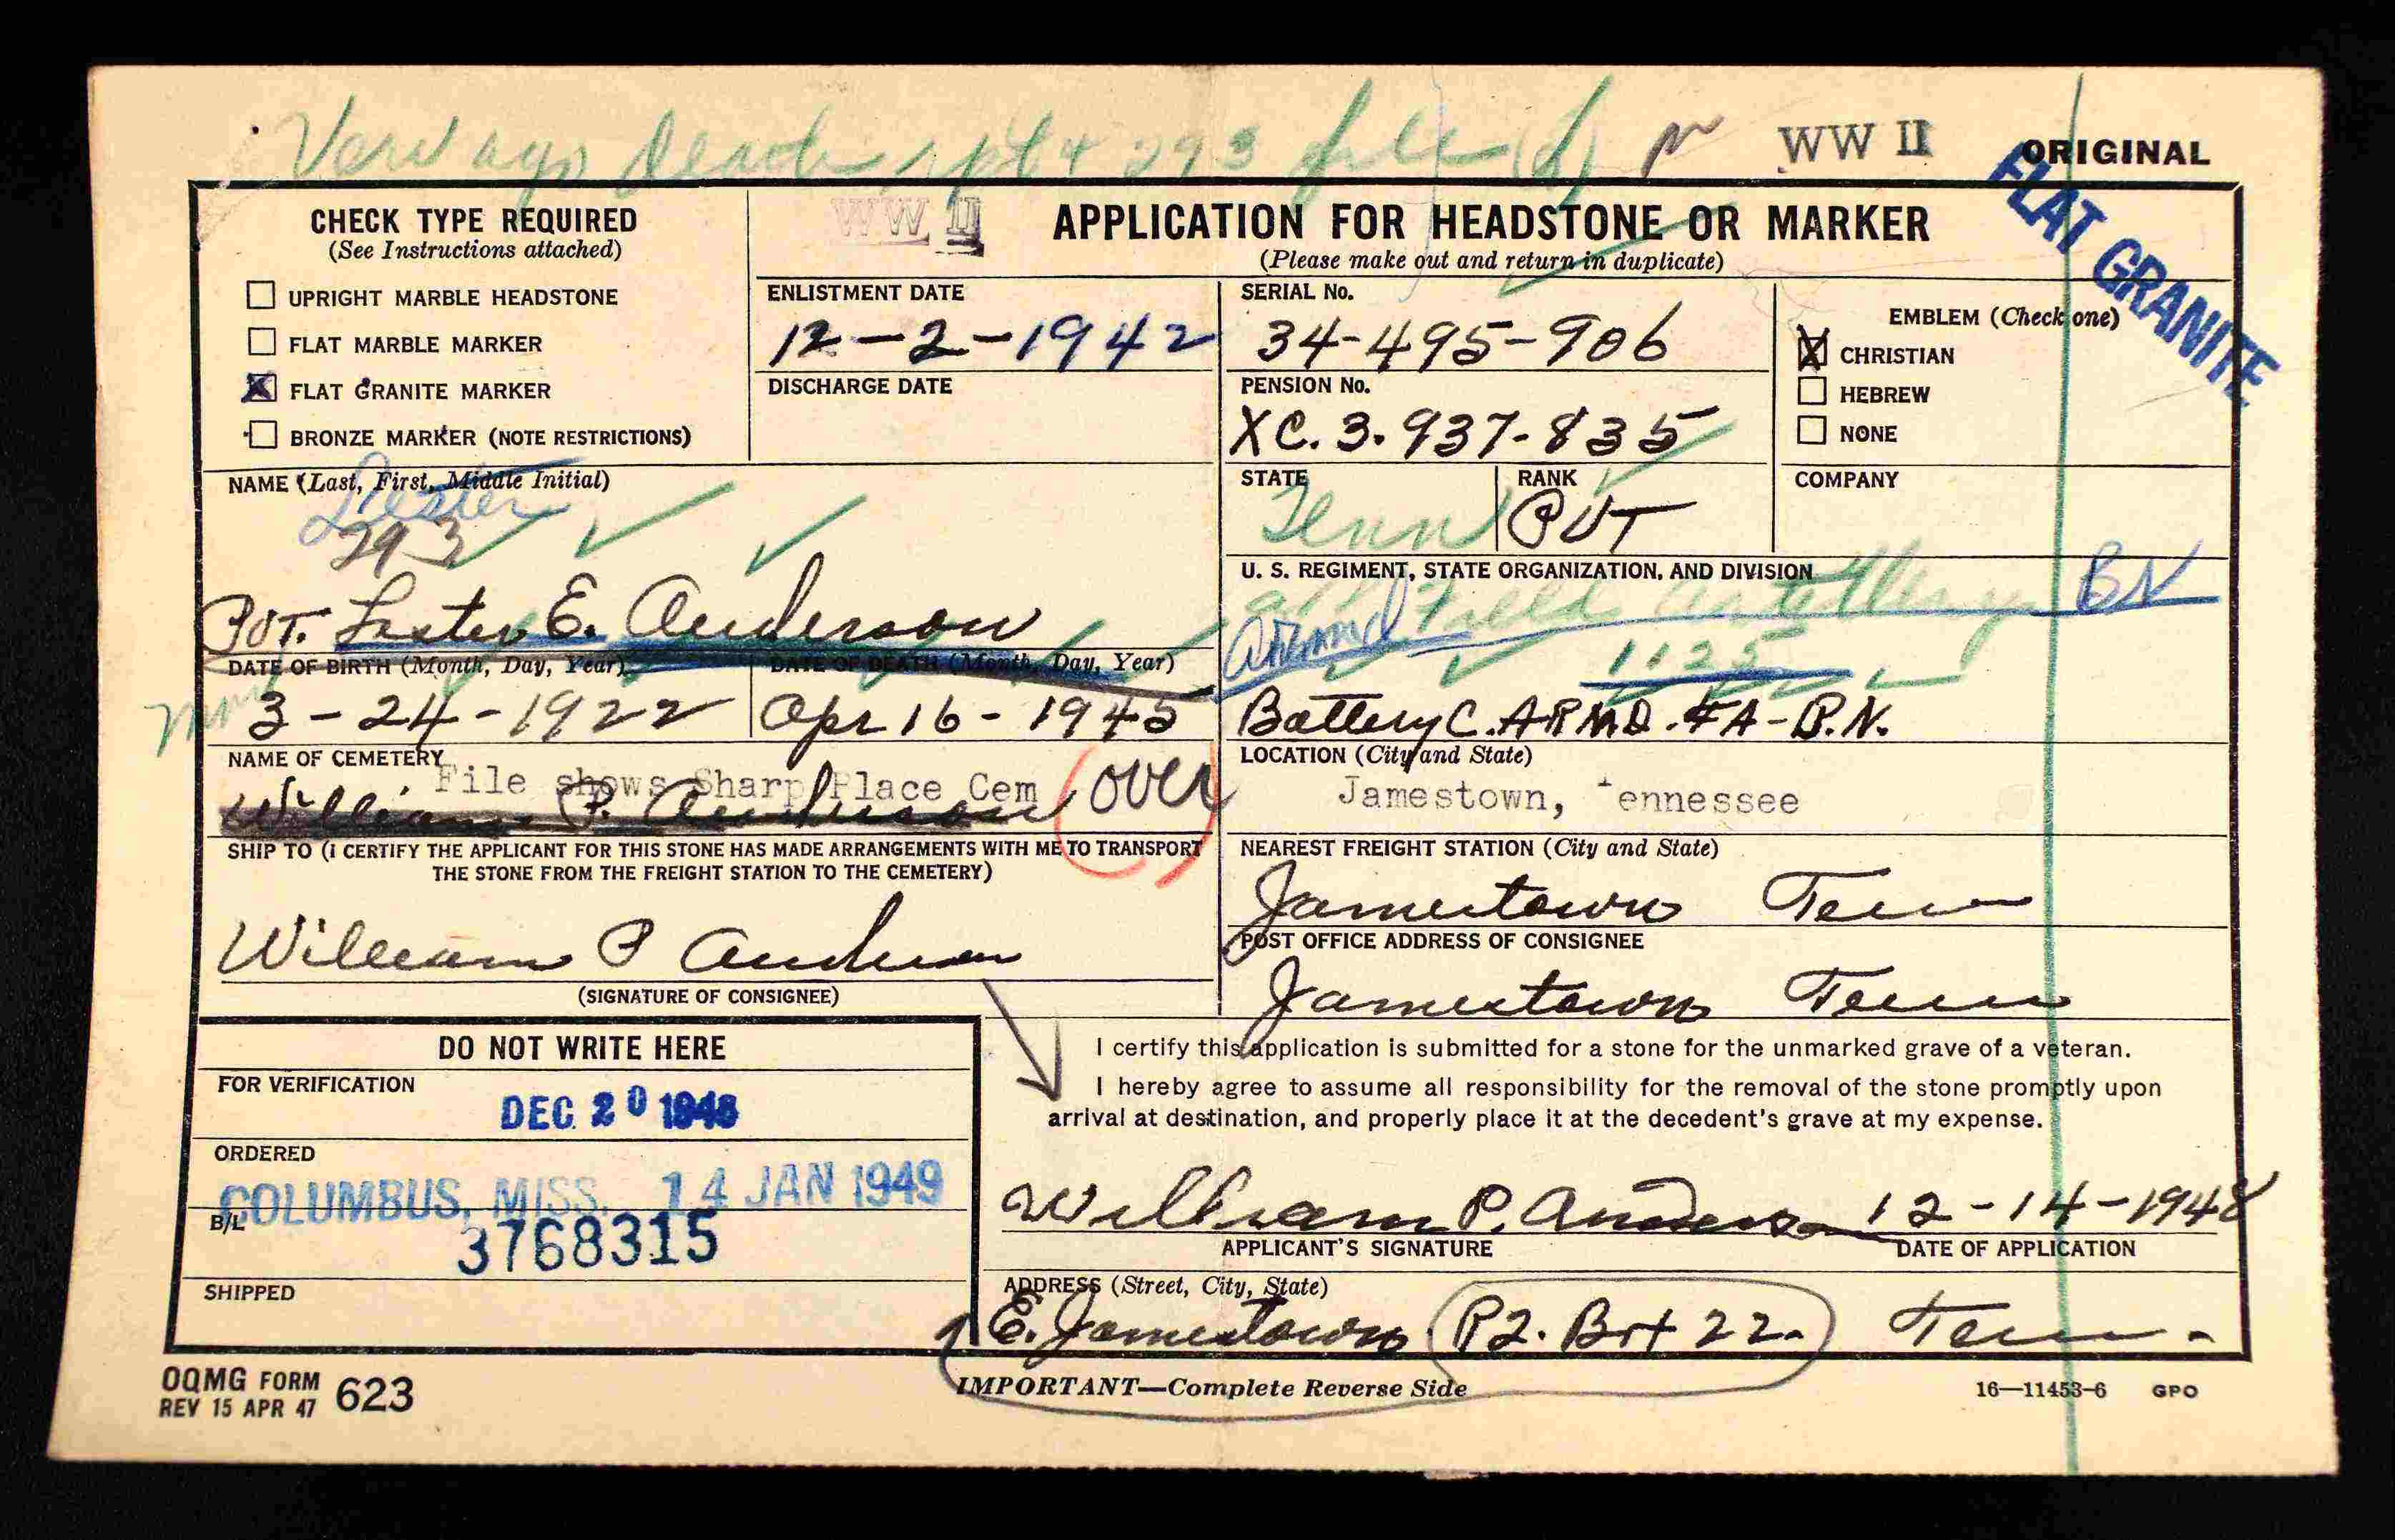 dead rpt + 293 file
WW II
ORIGINAL
FLAT GRANITE
CHECK TYPE REQUIRED
(See Instructions attached)
UPRIGHT MARBLE HEADSTONE
FLAT MARBLE MARKER
X FLAT GRANITE MARKER
BRONZE MARKER (NOTE RESTRICTIONS)
WW II
APPLICATION FOR HEADSTONE OR MARKER
(Please make out and return in duplicate)
ENLISTMENT DATE
12-2-1942
DISCHARGE DATE
SERIAL No.
34-495-906
PENSION No.
XC.3.937-835
EMBLEM (Check one)
X CHRISTIAN
HEBREW
NONE
NAME (Last, First, Middle Initial)
Lester
293
Pvt. Lester E. Anderson
STATE
Tenn
RANK
PVT
COMPANY
U. S. REGIMENT, STATE ORGANIZATION, AND DIVISION
Armd Field Artillery BN
1125
Battery C. ARMD. FA-B.N.
DATE OF BIRTH (Month, Day, Year)
3-24-1922
DATE OF DEATH (Month, Day, Year)
Apr 16-1945
NAME OF CEMETERY
File shows Sharp Place Cem
William P. Anderson
over
LOCATION (City and State)
Jamestown, Tennessee
SHIP TO (I CERTIFY THE APPLICANT FOR THIS STONE HAS MADE ARRANGEMENTS WITH ME TO TRANSPORT
THE STONE FROM THE FREIGHT STATION TO THE CEMETERY)
William P Anderson
(SIGNATURE OF CONSIGNEE)
NEAREST FREIGHT STATION (City and State)
Jamestown Tenn
POST OFFICE ADDRESS OF CONSIGNEE
Jamestown Tenn
DO NOT WRITE HERE
FOR VERIFICATION
DEC 20 1948
ORDERED
COLUMBUS, MISS. 14 JAN 1949
B/L
3768315
SHIPPED
I certify this application is submitted for a stone for the unmarked grave of a veteran.
I hereby agree to assume all responsibility for the removal of the stone promptly upon
arrival at destination, and properly place it at the decedent's grave at my expense.
William P. Anderson 12-14-1948
APPLICANT'S SIGNATURE
DATE OF APPLICATION
ADDRESS (Street, City, State)
E. Jamestown R2. Box 22. Tenn.
OQMG FORM 623
REV 15 APR 47
IMPORTANT—Complete Reverse Side
16—11453-6 GPO